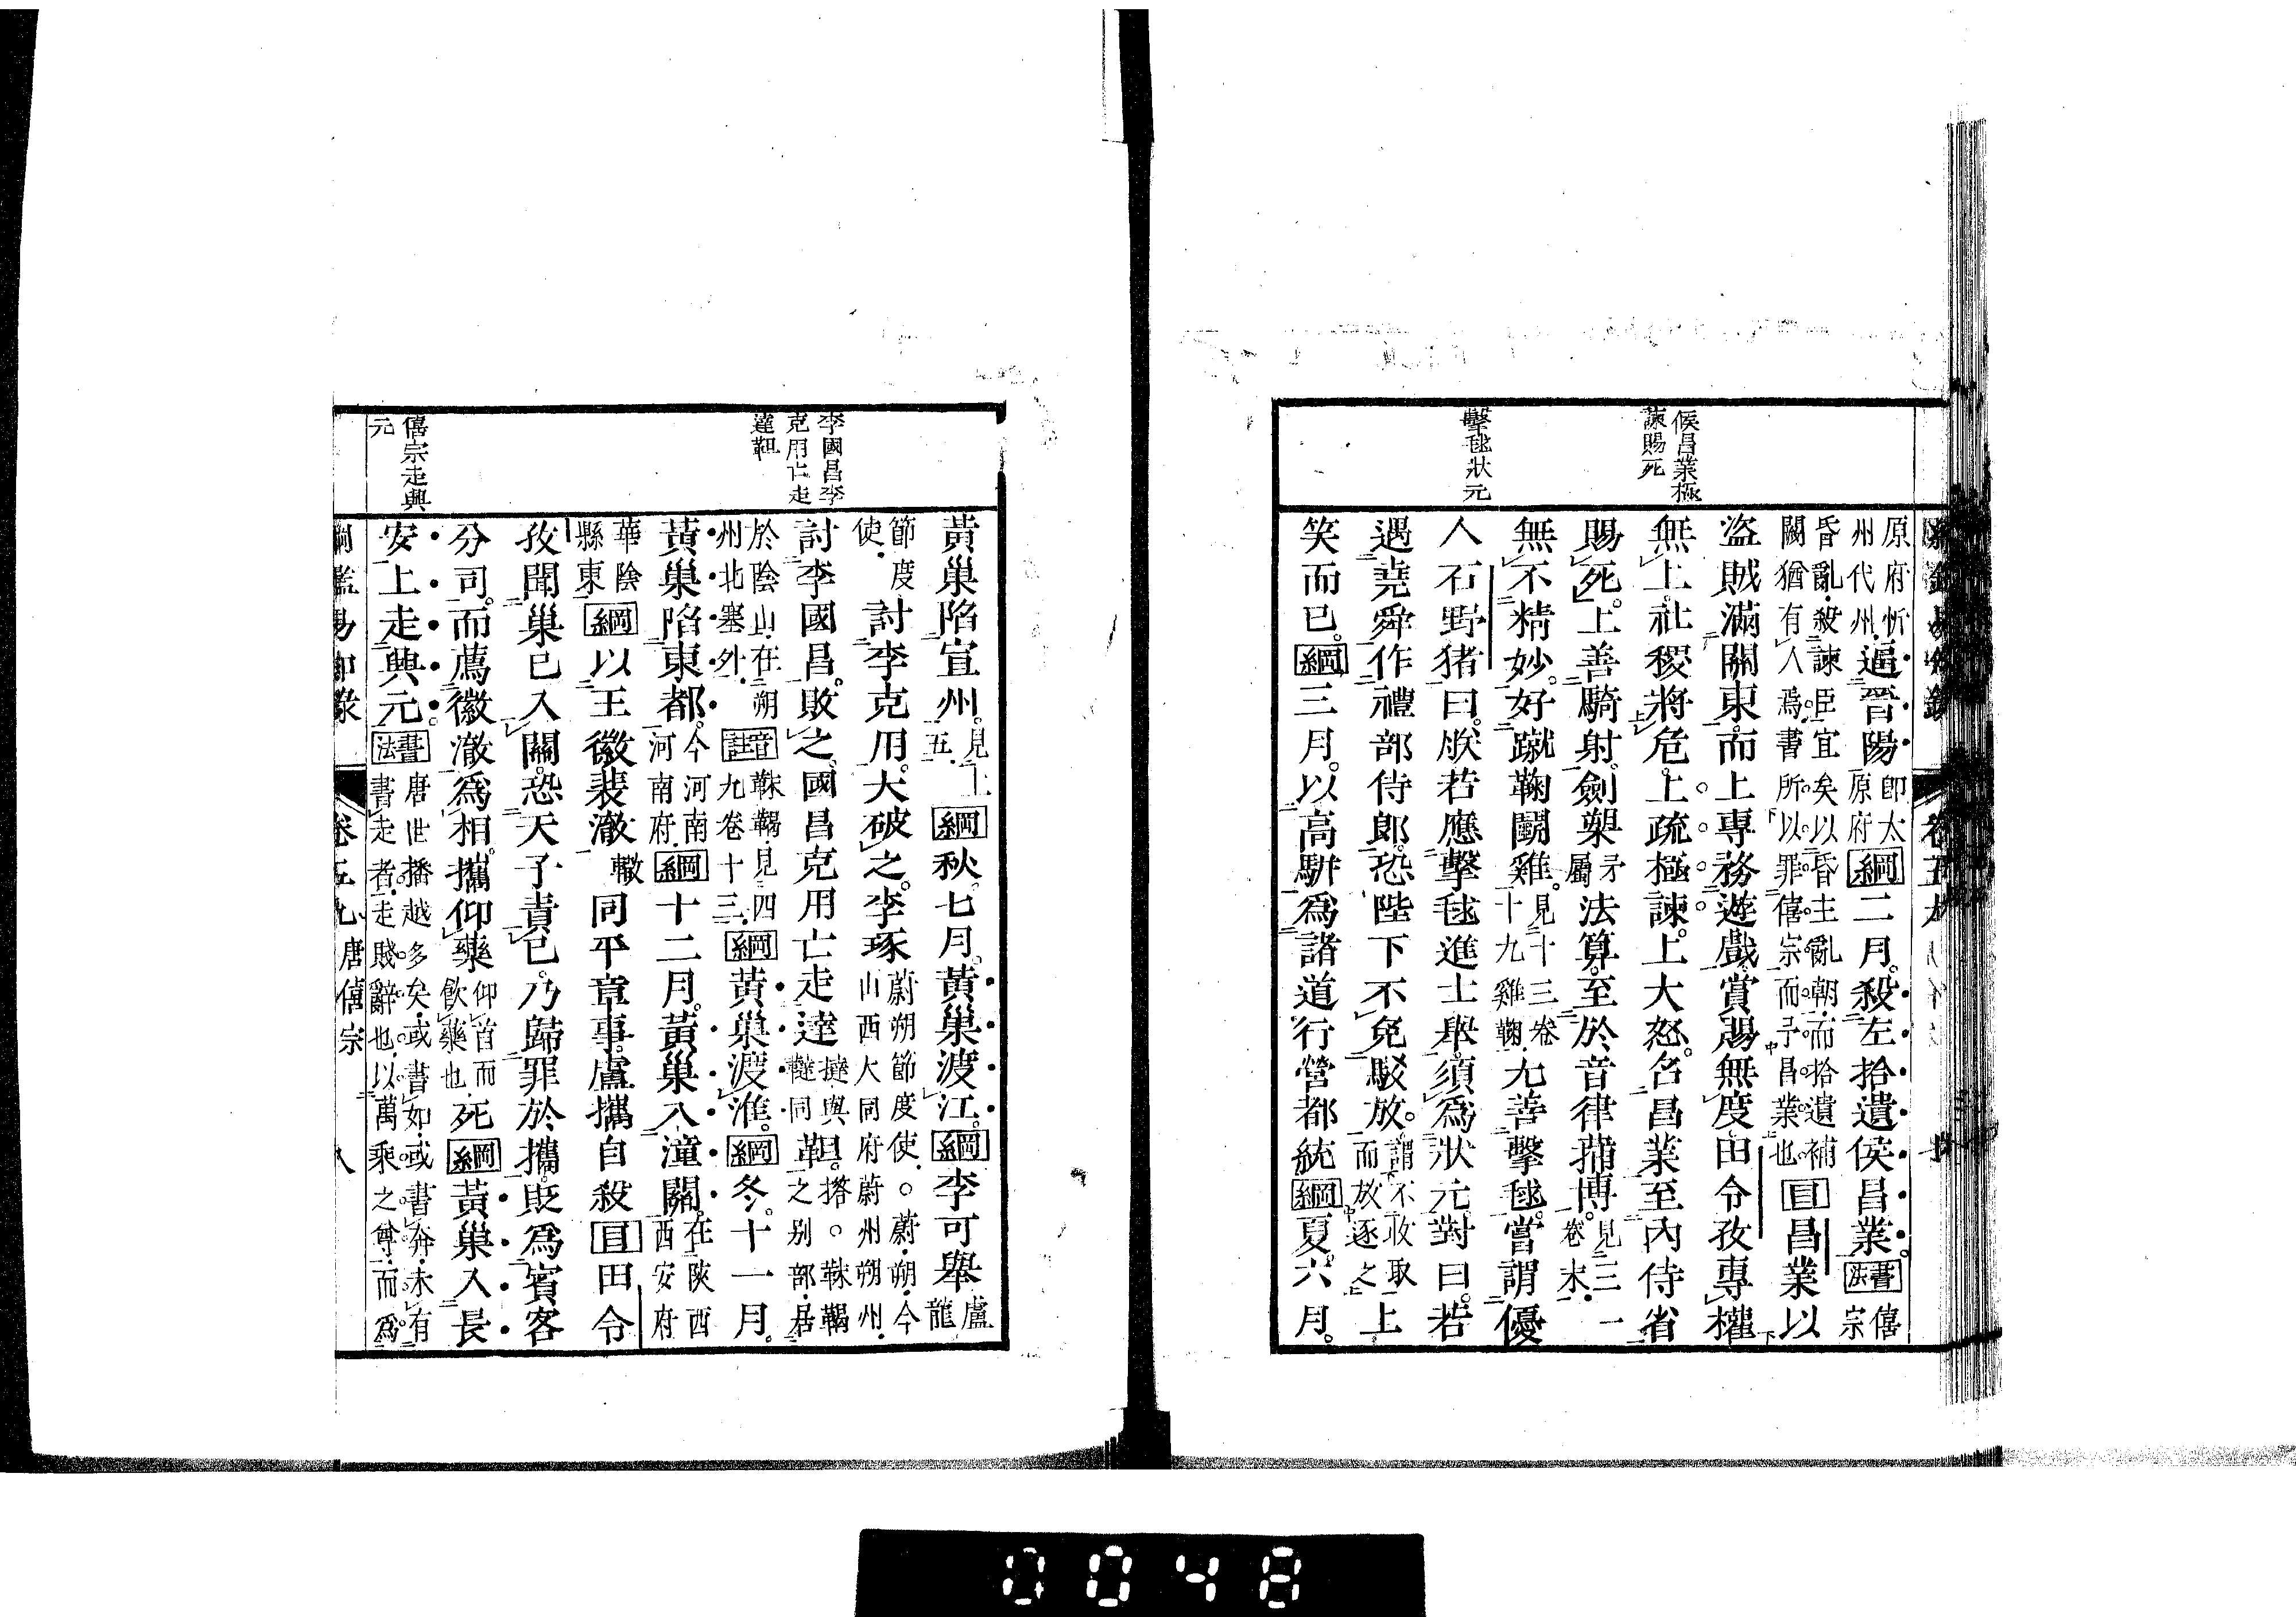 侯昌業極
諫賜死
擊毬狀元
原府忻
州代州逼晉陽即太
原府綱二月殺左拾遺侯昌業書法僖
宗
昏亂殺諫臣宜矣以昏主亂朝而拾遺補
闕猶有人焉書所以罪僖宗而予昌業也目昌業以
盜賊滿關東而上專務遊戲賞賜無度田令孜專權
無上社稷將危上疏極諫上大怒召昌業至內侍省
賜死上善騎射劍槊矛
屬法算至於音律蒲博見三一
卷末
無不精妙好蹴鞠鬪雞見十三卷
十九雞鞠尤善擊毬嘗謂優
人石野猪曰朕若應擊毬進士舉須爲狀元對曰若
遇堯舜作禮部侍郎恐陛下不免駁放謂不收取
而放逐之上
笑而已綱三月以高駢爲諸道行營都統綱夏六月
李國昌李
克用亡走
達靼
僖宗走興
元
黃巢陷宣州見上
五綱秋七月黃巢渡江綱李可舉盧
龍
節度
使討李克用大破之李琢蔚朔節度使○蔚朔今
山西大同府蔚州朔州
討李國昌敗之國昌克用亡走達撻與毘撘○靺鞨
韃同革之别部居
於陰山在朔
州北塞外音註靺鞨見四
九卷十三綱黃巢渡淮綱冬十一月
黃巢陷東都今河南
河南府綱十二月黃巢入潼關在陝西
西安府
華陰
縣東綱以王徽裴澈轍同平章事盧攜自殺目田令
孜聞巢已入關恐天子責己乃歸罪於攜貶爲賓客
分司而薦徽澈爲相攜仰藥仰首而
飲藥也死綱黃巢入長
安上走興元書法唐世播越多矣或書如或書奔未有
書走者走賤辭也以萬乘之尊而爲
綱鑑易知錄 卷五九 唐僖宗 八
0048